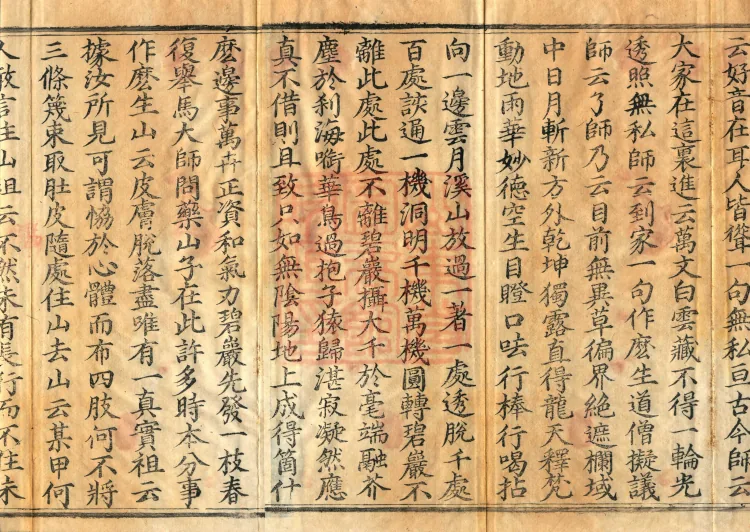 云好音在耳人皆聳一句無私亘古今師云
大家在這裏進云萬文白雲藏不得一輪光
透照無私師云到家一句作麽生道僧擬議
師云了師乃云目前無異草徧界絶遮欄域
中日月斬新方外乾坤獨露直得龍天釋梵
動地雨華妙德空生目瞪口呿行棒行喝拈
向一邊雲月溪山放過一著一處透脫千處
百處談通一機洞明千機萬機圓轉碧巖不
離此處此處不離碧巖攝大千於毫端融芥
塵於刹海啣華鳥過抱子猿歸湛寂凝然應
真不借則且致只如無陰陽地上成得箇什
麽邊事萬卉正資和氣力碧巖先發一枝春
復舉馬大師問藥山子在此許多時本分事
作麽生山云皮膚脫落盡唯有一真實祖云
據汝所見可謂恊於心體而布四肢何不將
三條篾束取肚皮隨處住山去山云某甲何
人敢言住山祖云不然未有長行而不住未